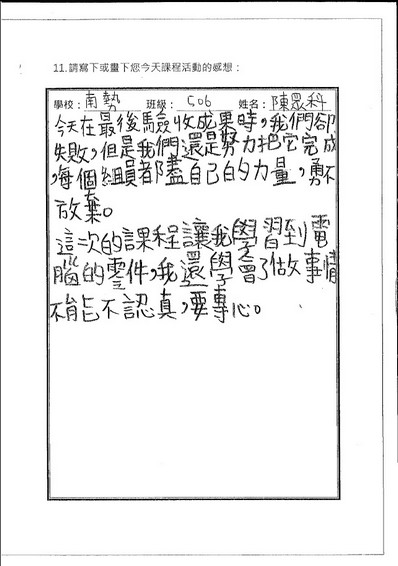 11.請寫下或畫下您今天課程活動的感想：
學校：南勢 班級：506 姓名：陳眾科
今天在最後驗收成果時，我們卻
失敗，但是我們還是努力把它完成
，每個組員都盡自己的力量，勇不
放棄。
這次的課程讓我學習到電
腦的零件，我還學會了做事情
不能不認真，要專心。